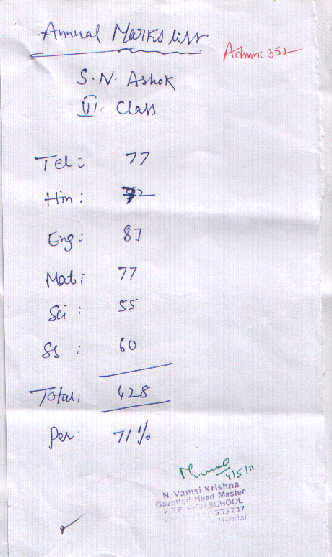 Annual Marks list
Admn:
S.N. Ashok
VI. Class
Tel: 77
Hin: 72
Eng: 87
Mat: 77
Sci: 55
SS: 60
Total: 428
Per: 71%
4/5/11
N. Vamsi Krishna
Gazetted Head Master
SCHOOL